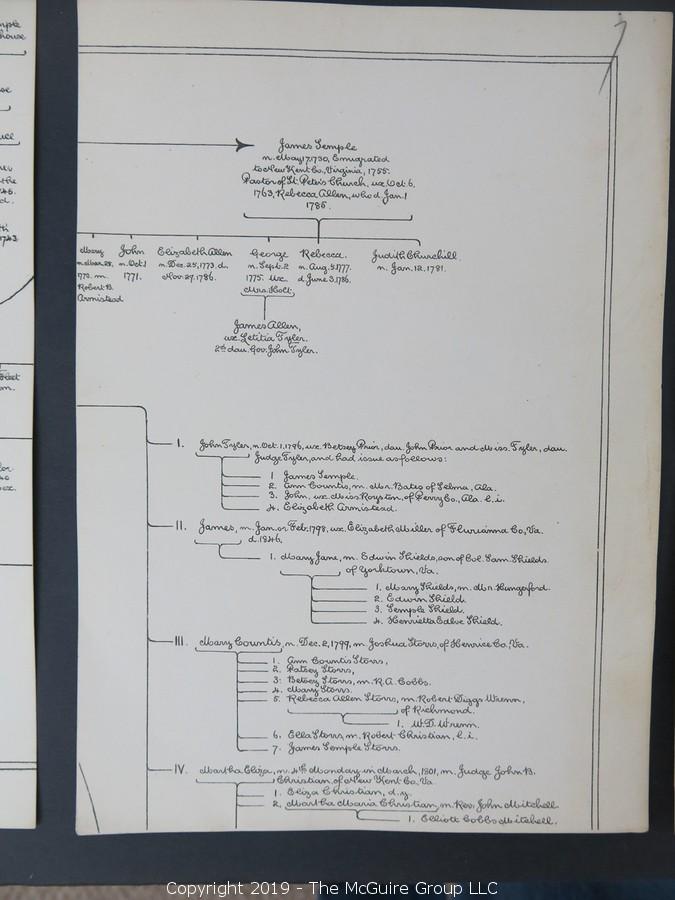 James Semple
n. May 17, 1730, Emigrated
to New Kent Co., Virginia, 1755.
Pastor of St. Peter's Church, ux. Oct. 6,
1763, Rebecca Allen, who d. Jan. 1
1786.
Mary
1770. m.
Robert B.
Armistead
John
n. Oct. 1
1771.
Elizabeth Allen
n. Dec. 25, 1773. d.
Nov. 27. 1786.
George
n. Sept. 2
1775. ux.
Mrs. Holt.
Rebecca.
n. Aug. 9. 1777.
d June 3, 1786.
Judith Churchill
n. Jan. 12. 1781.
James Allen,
ux. Letitia Tyler.
2nd dau. Gov. John Tyler.
I. John Tyler, n. Oct. 1, 1796, ux. Betsey Prior, dau. John Prior and Miss. Tyler, dau.
Judge Tyler, and had issue as follows:
1 James Semple.
2. Ann Countis, m. Mr. Bates of Selma, Ala.
3. John, ux. Miss Royston, of Perry Co., Ala. l. i.
4. Elizabeth Armistead.
II. James, n. Jan. or Feb. 1798, ux. Elizabeth Miller of Fluvianna Co., Va.
d. 1846.
1. Mary Jane, m. Edwin Shields, son of Col. Sam. Shields.
of Yorktown, Va.
1. Mary Shields, m. Mr. Hungaford.
2. Edwin Shield.
3. Semple Shield.
4. Henrietta Shield.
III. Mary Countis, n. Dec. 2, 1799, m. Joshua Storrs, of Henrico Co., Va.
1. Ann Countis Storrs,
2. Patsey Storrs,
3. Betsey Storrs, m. R. A. Cobbs.
4. Mary Storrs.
5. Rebecca Allen Storrs, m. Robert Diggs Wrenn,
of Richmond.
1. W. D. Wrenn.
6. Ella Storrs, m. Robert Christian, l. i.
7. James Semple Storrs.
IV. Martha Eliza, n. 4th Monday in March, 1801, m. Judge John B.
Christian of New Kent Co. Va.
1. Eliza Christian, d. y.
2. Martha Maria Christian, m. Rev. John Mitchell
1. Elliott Cobbs Mitchell.
Copyright 2019 - The McGuire Group LLC